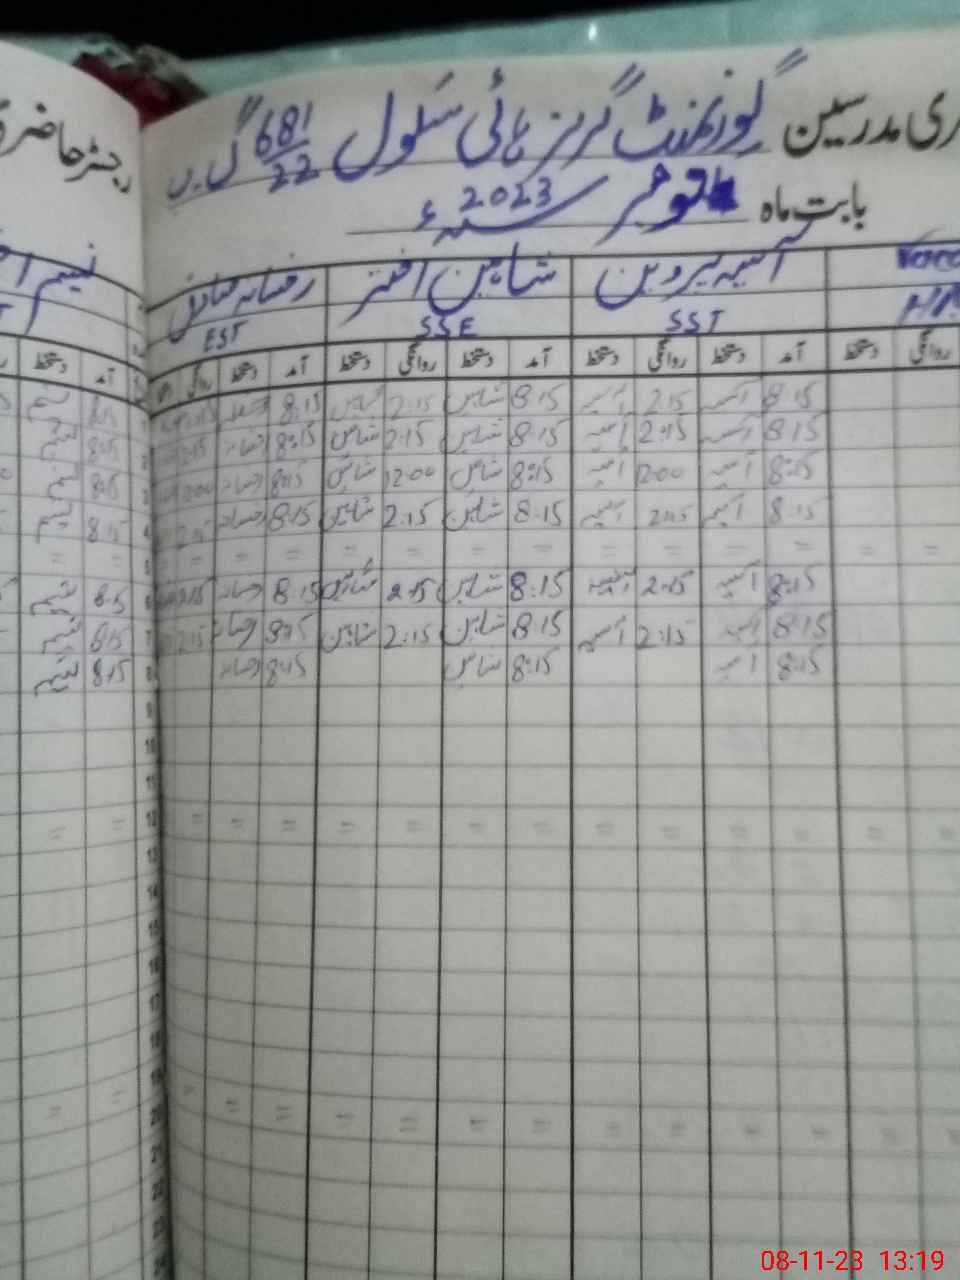 رجسٹر حاضری مدرسین گورنمنٹ گرلز ہائی سکول 681/22 گ ب
بابت ماہ نومبر سنہ 2023ء
آسیہ پروین شاہین اختر رخسانہ صادق نسیم
SST SSE EST
روانگی دستخط آمد دستخط روانگی دستخط آمد دستخط روانگی دستخط آمد دستخط روانگی آمد دستخط
8:15 آسیہ 2:15 آسیہ 8:15 شاہین 2:15 شاہین 8:15 1 8:15 نسیم
8:15 آسیہ 2:15 آسیہ 8:15 شاہین 2:15 شاہین 8:15 2:15 2 8:15 نسیم
8:15 آسیہ 12:00 آسیہ 8:15 شاہین 12:00 شاہین 8:15 12:00 3 8:15 نسیم
8:15 آسیہ 2:15 آسیہ 8:15 شاہین 2:15 شاہین 8:15 2:15 4 8:15 نسیم
= = = = = = = = = = = = = 5
8:15 آسیہ 2:15 آسیہ 8:15 شاہین 2:15 شاہین 8:15 2:15 6 8:15 نسیم
8:15 آسیہ 2:15 آسیہ 8:15 شاہین 2:15 شاہین 8:15 2:15 7 8:15 نسیم
8:15 آسیہ 8:15 شاہین 8:15 8 8:15 نسیم
9
10
11
12
13
14
15
16
17
18
19
20
21
22
23
08-11-23 13:19